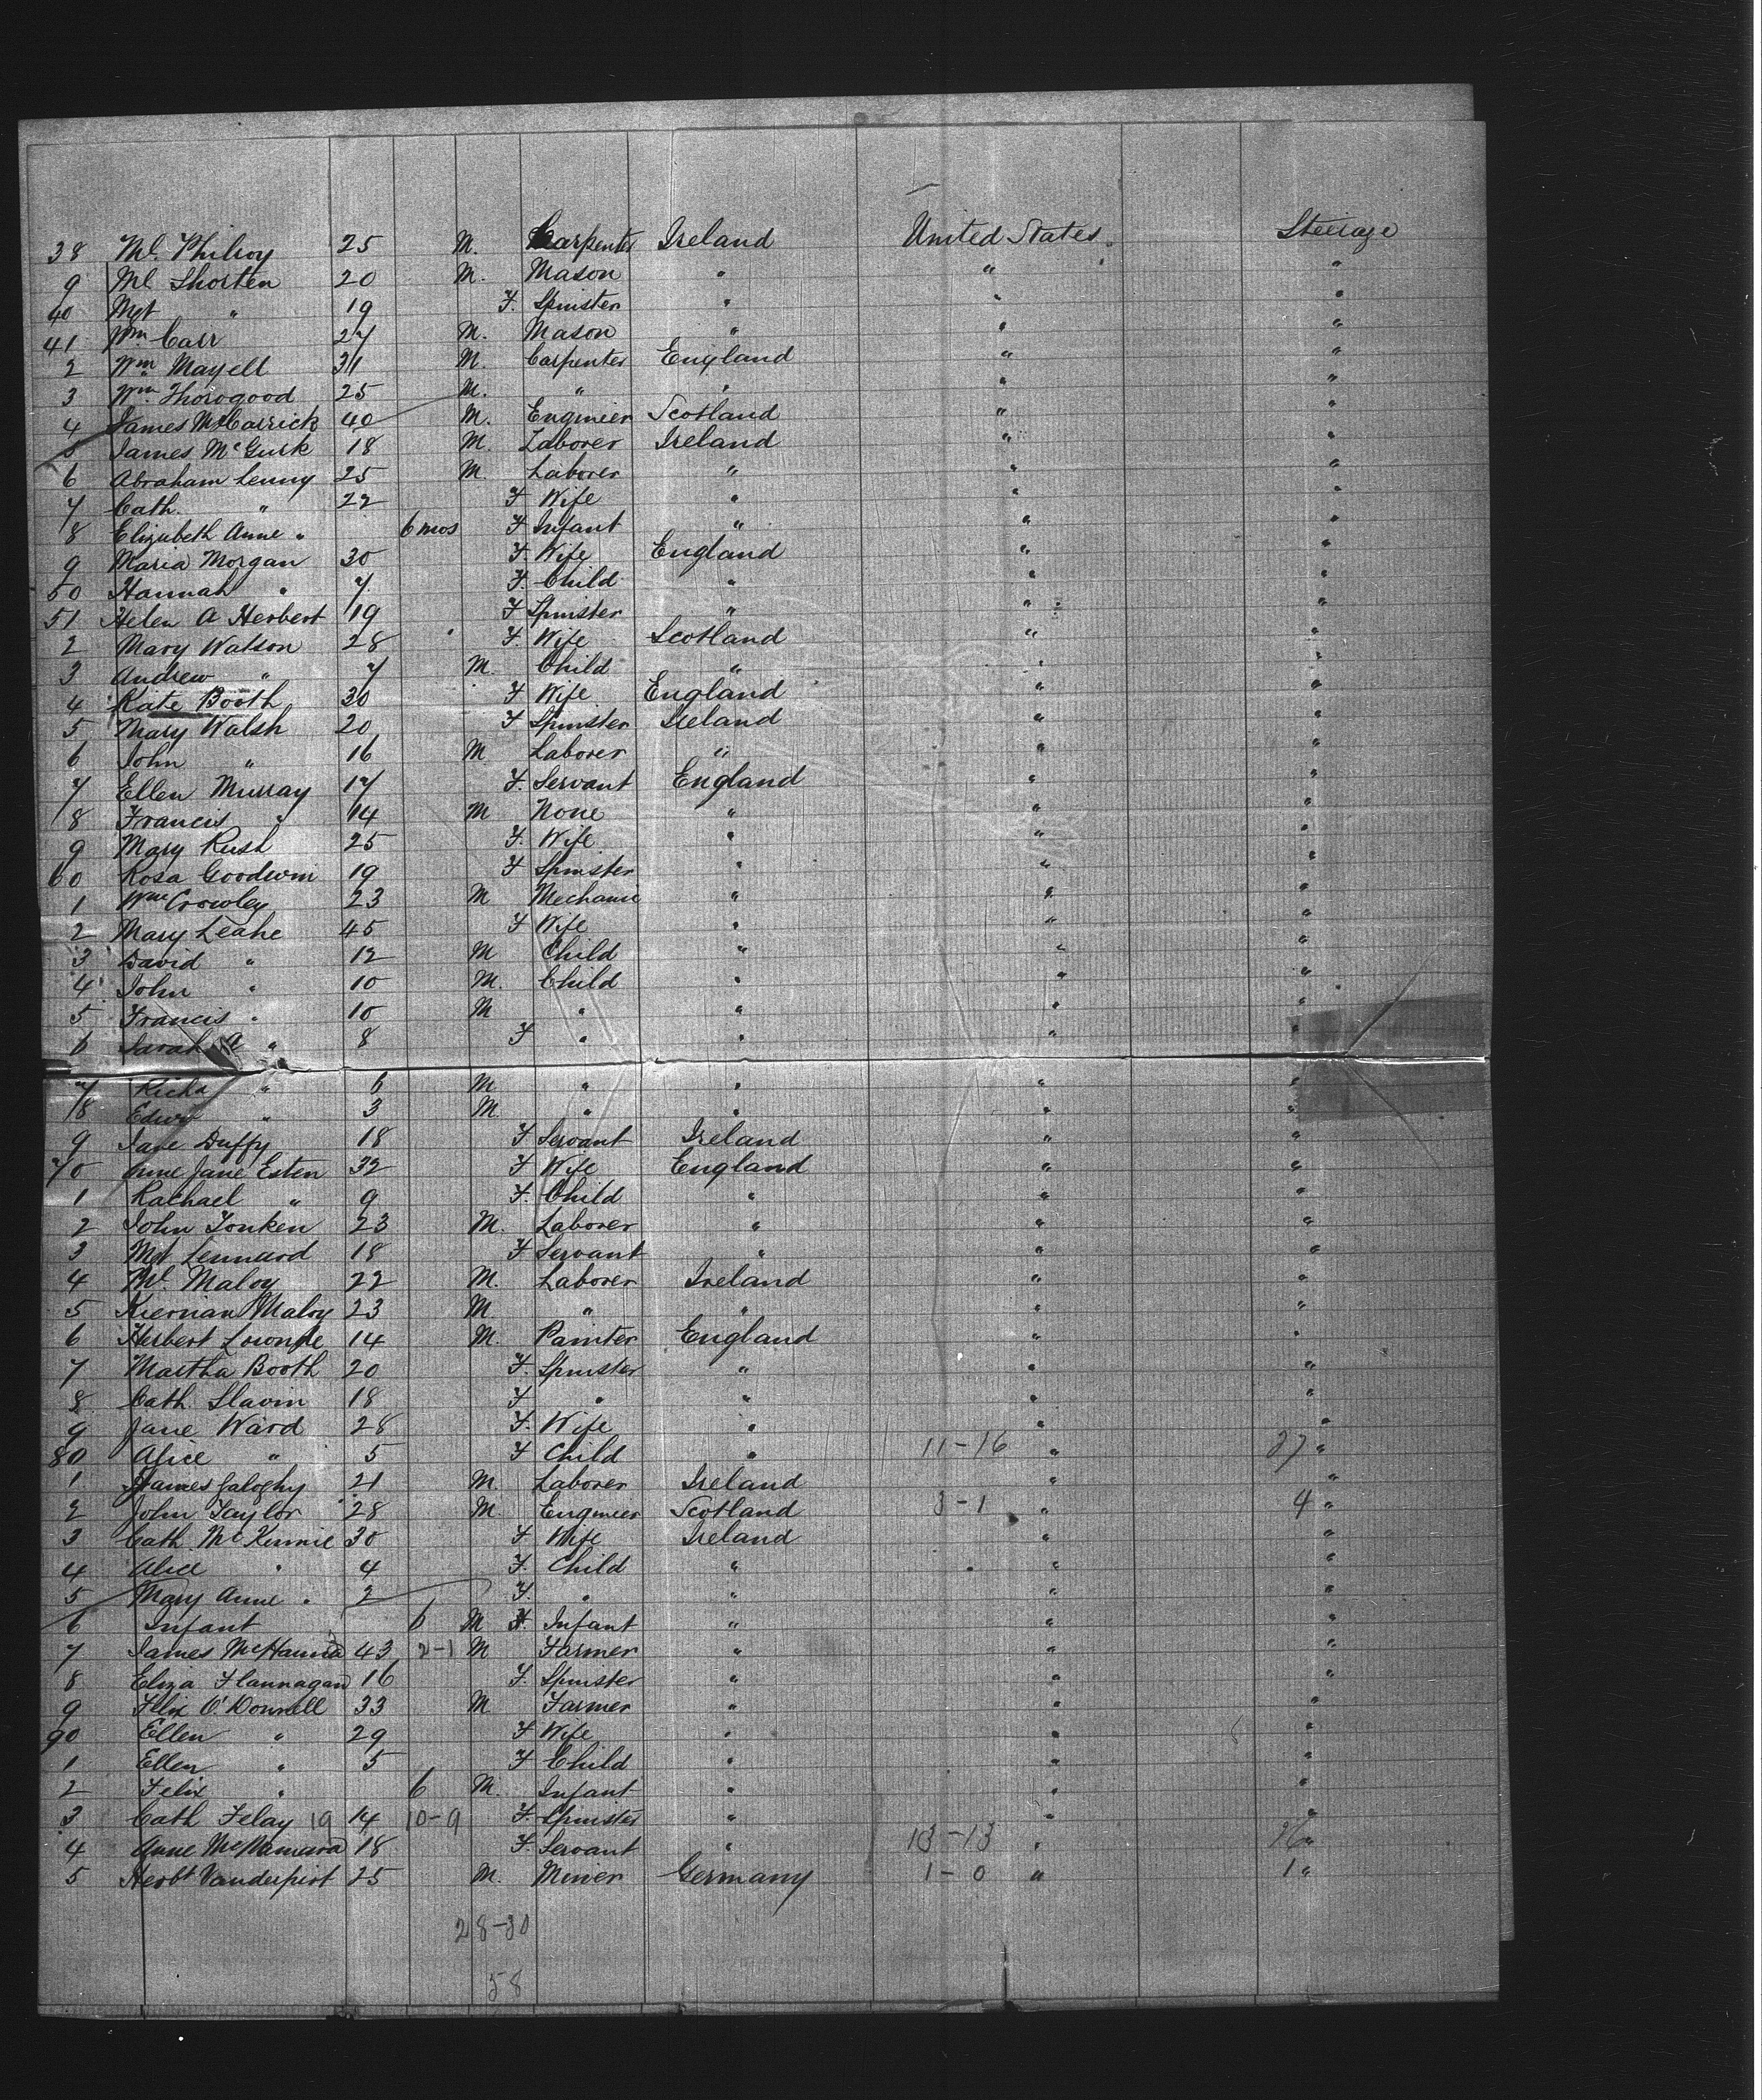 38 Ml. Philroy 25 M. Carpenter Ireland United States Steerage
9 Ml Shorten 20 M. Mason " " "
40 Mgt " 19 F. Spinster " " "
41 Wm Carr 27 M. Mason " " "
2 Wm Mayell 31 M. Carpenter England " "
3 Wm Thorogood 25 M. " " " "
4 James McCarrick 40 M. Engineer Scotland " "
5 James McGurk 18 M. Laborer Ireland " "
6 Abraham Lenny 25 M. Laborer " " "
7 Cath. " 22 F Wife " " "
8 Elizabeth Anne " 6 mos F Infant " " "
9 Maria Morgan 30 F. Wife England " "
50 Hannah " 7 F. Child " " "
51 Helen A Herbert 19 F Spinster " " "
2 Mary Watson 28 F Wife Scotland " "
3 Andrew " 7 M. Child " " "
4 Kate Booth 30 F Wife England " "
5 Mary Walsh 20 F Spinster Ireland " "
6 John " 16 M Laborer " " "
7 Ellen Murray 17 F. Servant England " "
8 Francis " 14 M None " " "
9 Mary Rush 25 F. Wife " " "
60 Rosa Goodwin 19 F Spinster " " "
1 Wm Crowley 23 M Mechanic " " "
2 Mary Leahe 45 F Wife " " "
3 David " 12 M Child " " "
4 John " 10 M. Child " " "
5 Francis " 10 M " " " "
6 Sarah " 8 F " " " "
7 Richd " 6 M " " " "
8 Edwn " 3 M. " " " "
9 Jane Duffy 18 F Servant Ireland " "
70 Anne Jane Esten 32 F Wife England " "
1 Rachael " 9 F. Child " " "
2 John Tonken 23 M. Laborer " " "
3 Mgt Lennard 18 F Servant " " "
4 Ml. Maloy 22 M. Laborer Ireland " "
5 Kiernan Maloy 23 M " " " "
6 Herbert 14 M. Painter England " "
7 Martha Booth 20 F. Spinster " " "
8 Cath Slavin 18 F " " " "
9 Jane Ward 28 F. Wife " " "
80 Alice " 5 F Child " 11-16 " 27 "
1 James Galoghy 21 M. Laborer Ireland " "
2 John Taylor 28 M. Engineer Scotland 3-1 " 4 "
3 Cath McKennie 30 F Wife Ireland " "
4 Alice " 4 F. Child " " "
5 Mary Anne " 2 F. " " " "
6 Infant 6 M F. Infant " " "
7 James McHanna 43 2-1 M Farmer " " "
8 Eliza Flannagan 16 F. Spinster " " "
9 Felix O'Donnell 33 M. Farmer " " "
90 Ellen " 29 F Wife " " "
1 Ellen " 5 F Child " " "
2 Felix " 6 M. Infant " " "
3 Cath Felay 19 14 10-9 F. Spinster " " "
4 Anne McNamara 18 F. Servant " 13-13 " 26 "
5 Herbt Vanderpirt 25 M. Miner Germany 1-0 " 1 "
28-30
58